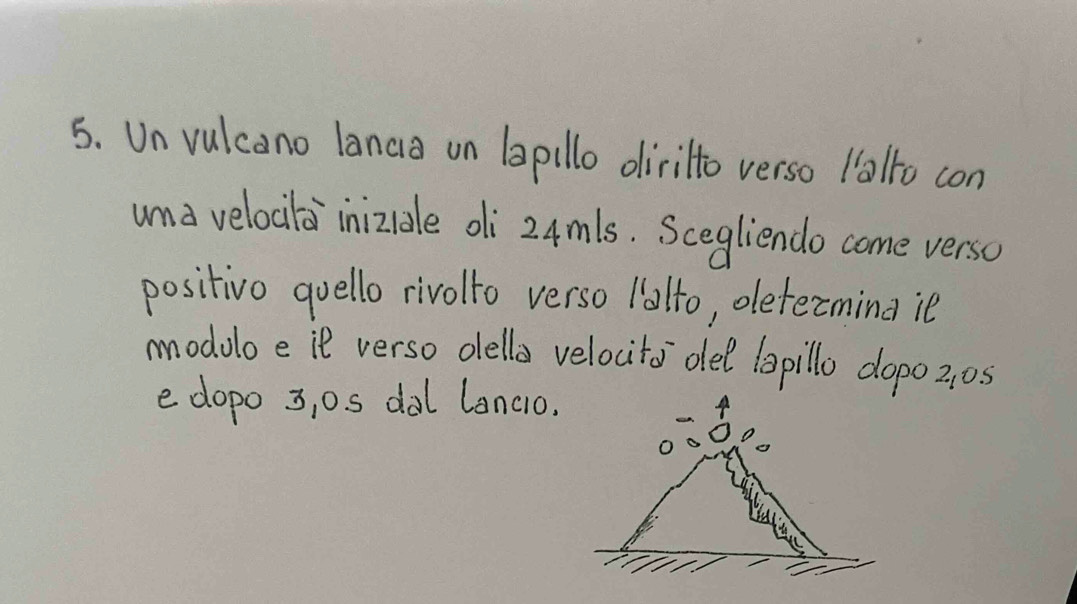 5. Un vulcano lancia un lapillo diritto verso l'alto con
una velocità iniziale di 24 m/s. Scegliendo come verso
positivo quello rivolto verso l'alto, determina il
modulo e il verso della velocità del lapillo dopo 2,0s
e dopo 3,0 s dal lancio.